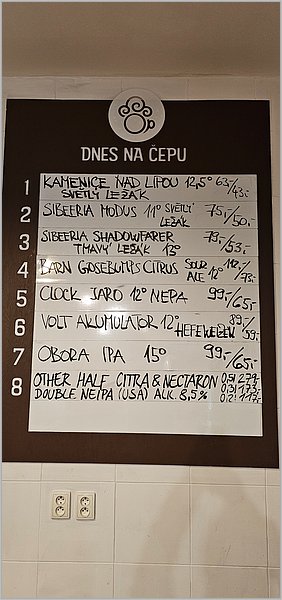 DNES NA ČEPU
1 KAMENICE NAD LIPOU 12,5° 63,-/43.-
SVĚTLÝ LEŽÁK
2 SIBEERIA MODUS 11° SVĚTLÝ LEŽÁK 75,-/50,-
3 SIBEERIA SHADOWFARER 79,-/53,-
TMAVÝ LEŽÁK 13°
4 BARN GOSEBUMPS CITRUS SOUR ALE 12° 112,-/73,-
5 CLOCK JARO 12° NEPA 99,-/65,-
6 VOLT AKUMULATOR 12° HEFEWEIZEN 89,-/59,-
7 OBORA IPA 15° 99,-/65,-
8 OTHER HALF CITRA & NECTARON 0,5l 279,-
DOUBLE NEIPA (USA) ALK. 8,5% 0,3l 173,-
0,2l 117,-